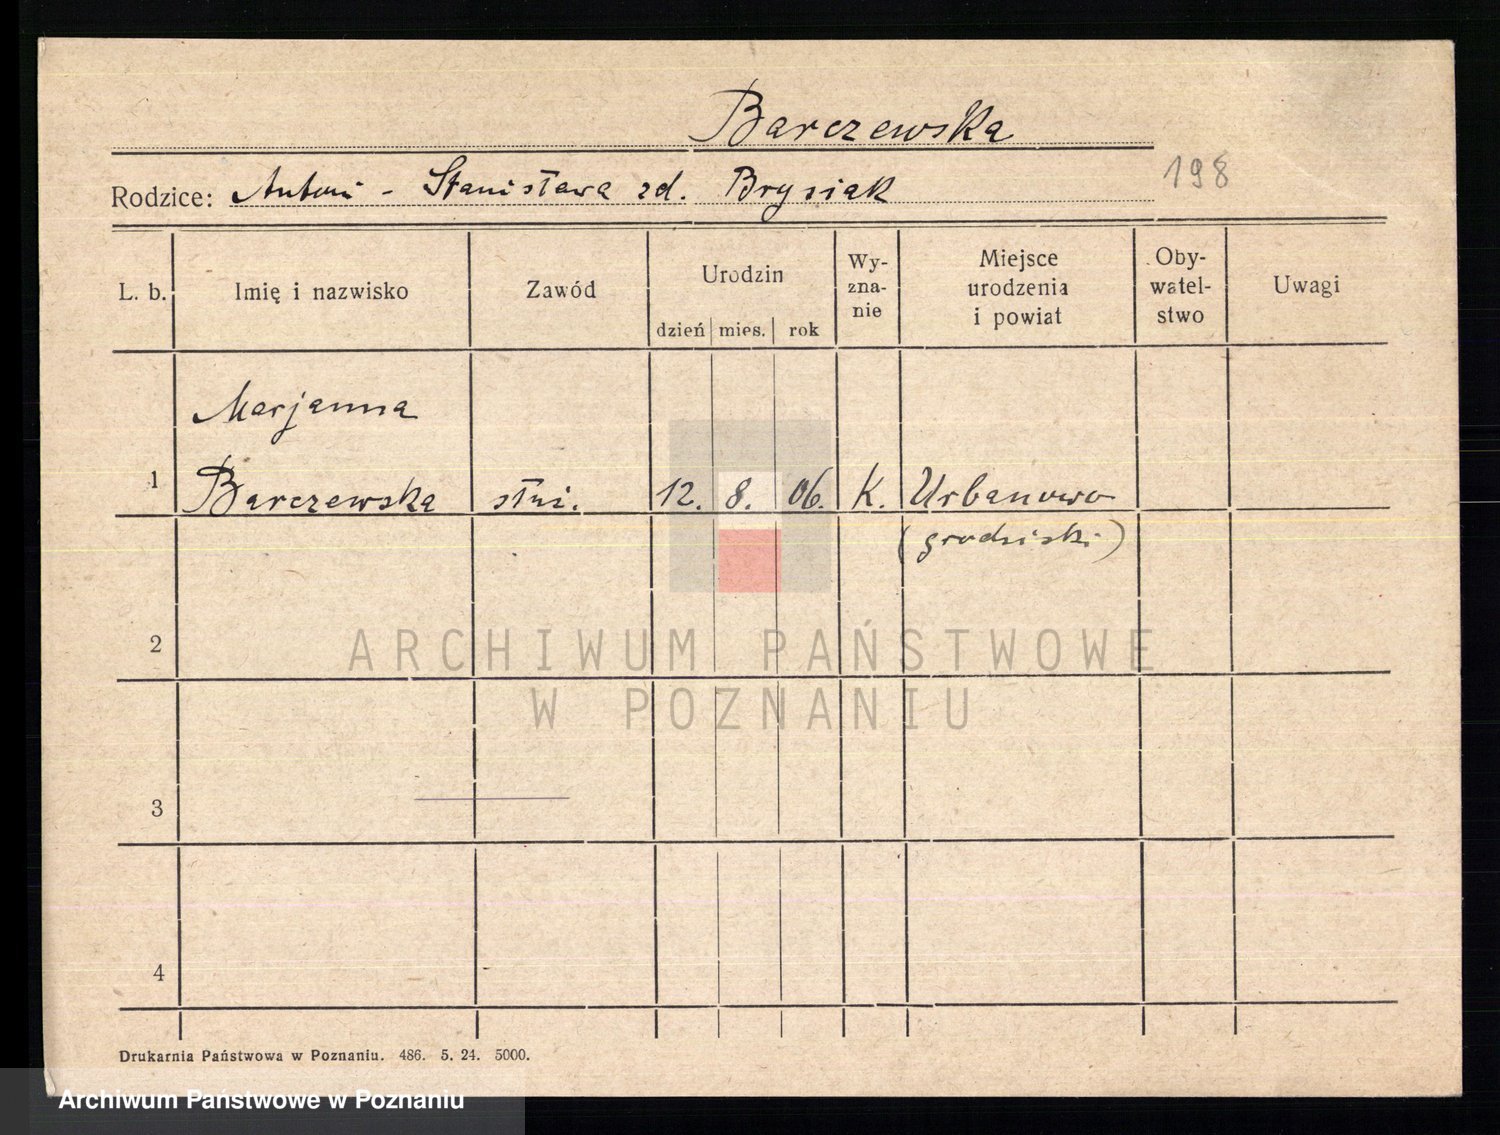 Barczewska
Rodzice: Antoni - Stanisława zd. Brysiak
198
L. b. Imię i nazwisko Zawód Urodzin dzień mies. rok Wy-
zna-
nie Miejsce
urodzenia
i powiat Oby-
watel-
stwo Uwagi
Marjanna
1 Barczewska słui. 12. 8. 06. K. Urbanowo
(grodziski)
2
ARCHIWUM PAŃSTWOWE
W POZNANIU
3
4
Drukarnia Państwowa w Poznaniu. 486. 5. 24. 5000.
Archiwum Państwowe w Poznaniu